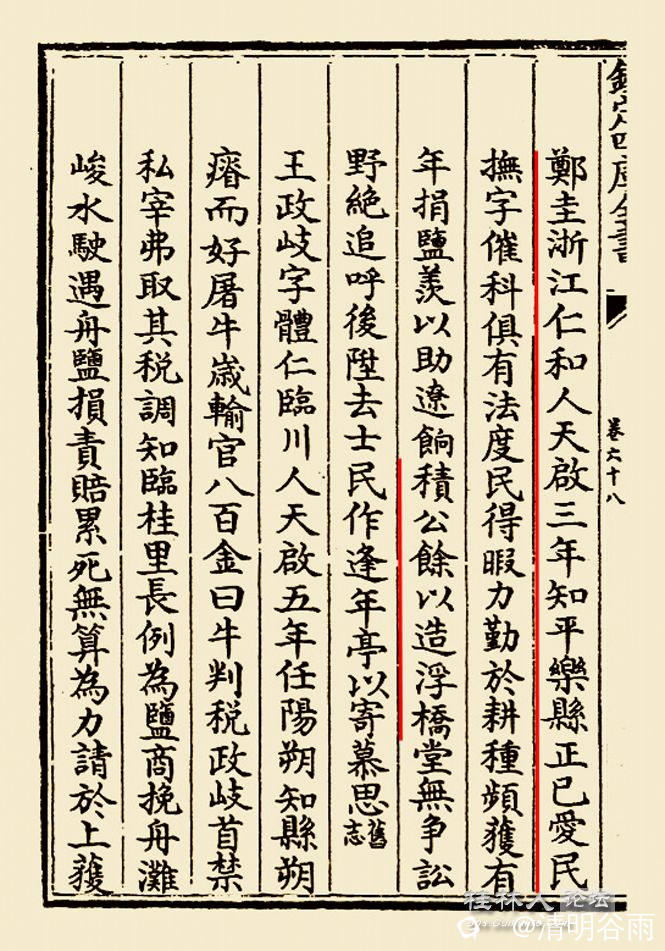 欽定四庫全書
卷六十八
鄭圭浙江仁和人天啟三年知平樂縣正已愛民
撫字催科俱有法度民得暇力勤於耕種頻獲有
年捐鹽羨以助遼餉積公餘以造浮橋堂無争訟
野絶追呼後陞去士民作逢年亭以寄慕思舊志
王政岐字體仁臨川人天啟五年任陽朔知縣朔
瘠而好屠牛嵗輸官八百金曰牛判税政岐首禁
私宰弗取其税調知臨桂里長例為鹽商挽舟灘
峻水駛遇舟鹽損責賠累死無算為力請於上獲
桂林人论坛
@清明谷雨